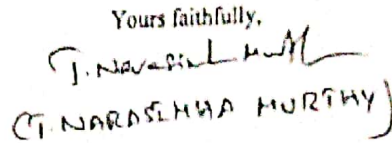 Yours faithfully,
T. Narasimha Murthy
(T. NARASIMHA MURTHY)